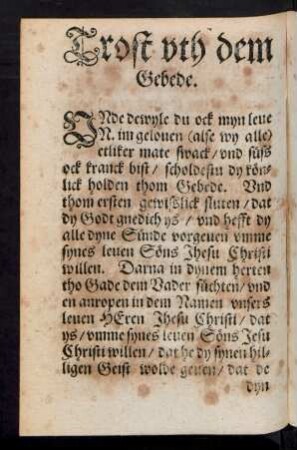 Trost vth dem
Gebede.
VNde dewyle du ock myn leue
N. im gelouen (alse wy alle)
etliker mate swack / vnd süss
ock kranck bist / scholdestu dy kön⸗
lick holden thom Gebede. Vnd
thom ersten gewißlick sluten / dat
dy Godt gnedich ys / vnd hefft dy
alle dyne Sünde vorgeuen vmme
synes leuen Söns Jhesu Christi
willen. Darna in dynem herten
tho Gade dem Vader süchten / vnd
en anropen in dem Namen vnsers
leuen HEren Jhesu Christi / dat
ys / vmme synes leuen Söns Jesu
Christi willen / dat he dy synen hil⸗
ligen Geist wolde geuen / dat de
dyn